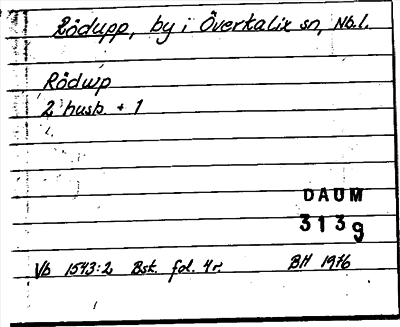 Rödupp, by i Överkalix sn, Nb.l.
Rödwp
2 husb. + 1
DAUM
3139
Vb 1543:2 Bsk. fol. 4r. BH 1976